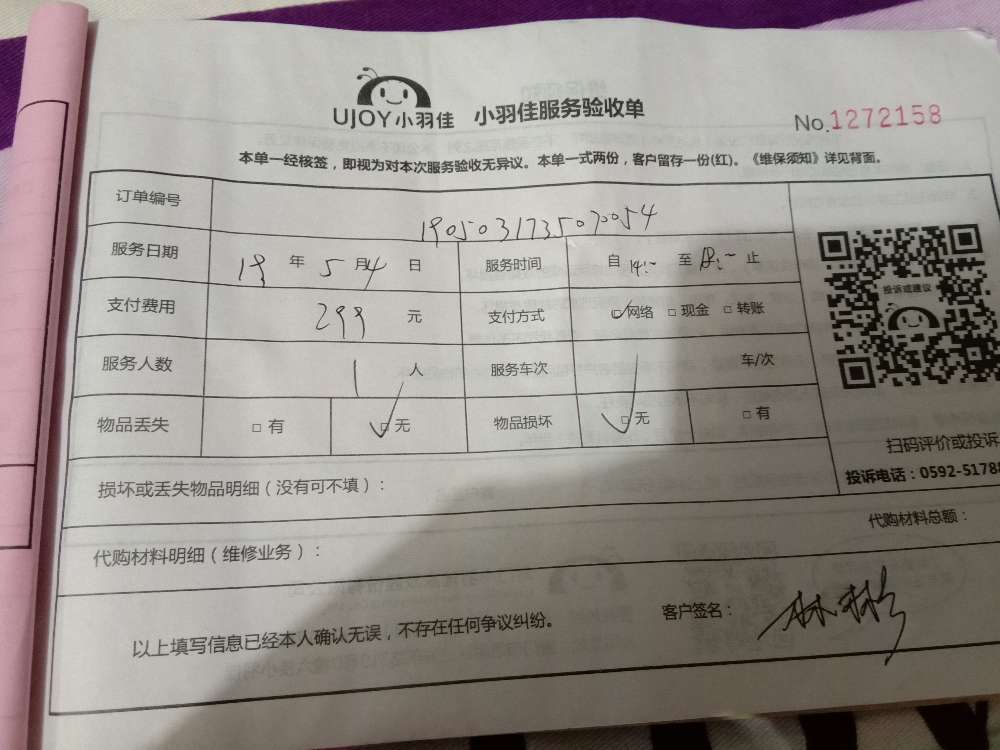 UJOY小羽佳 小羽佳服务验收单 No.1272158
本单一经核签，即视为对本次服务验收无异议。本单一式两份，客户留存一份(红)。《维保须知》详见背面。
订单编号 1905031735070054
服务日期 19 年 5 月 4 日 服务时间 自 14:~ 至 18:~ 止
投诉或建议
支付费用 299 元 支付方式 ☑网络 □现金 □转账
服务人数 1 人 服务车次 车/次
物品丢失 □有 ☑无 物品损坏 ☑无 □有
扫码评价或投诉
投诉电话：0592-5178
损坏或丢失物品明细（没有可不填）：
代购材料总额：
代购材料明细（维修业务）：
以上填写信息已经本人确认无误，不存在任何争议纠纷。 客户签名：